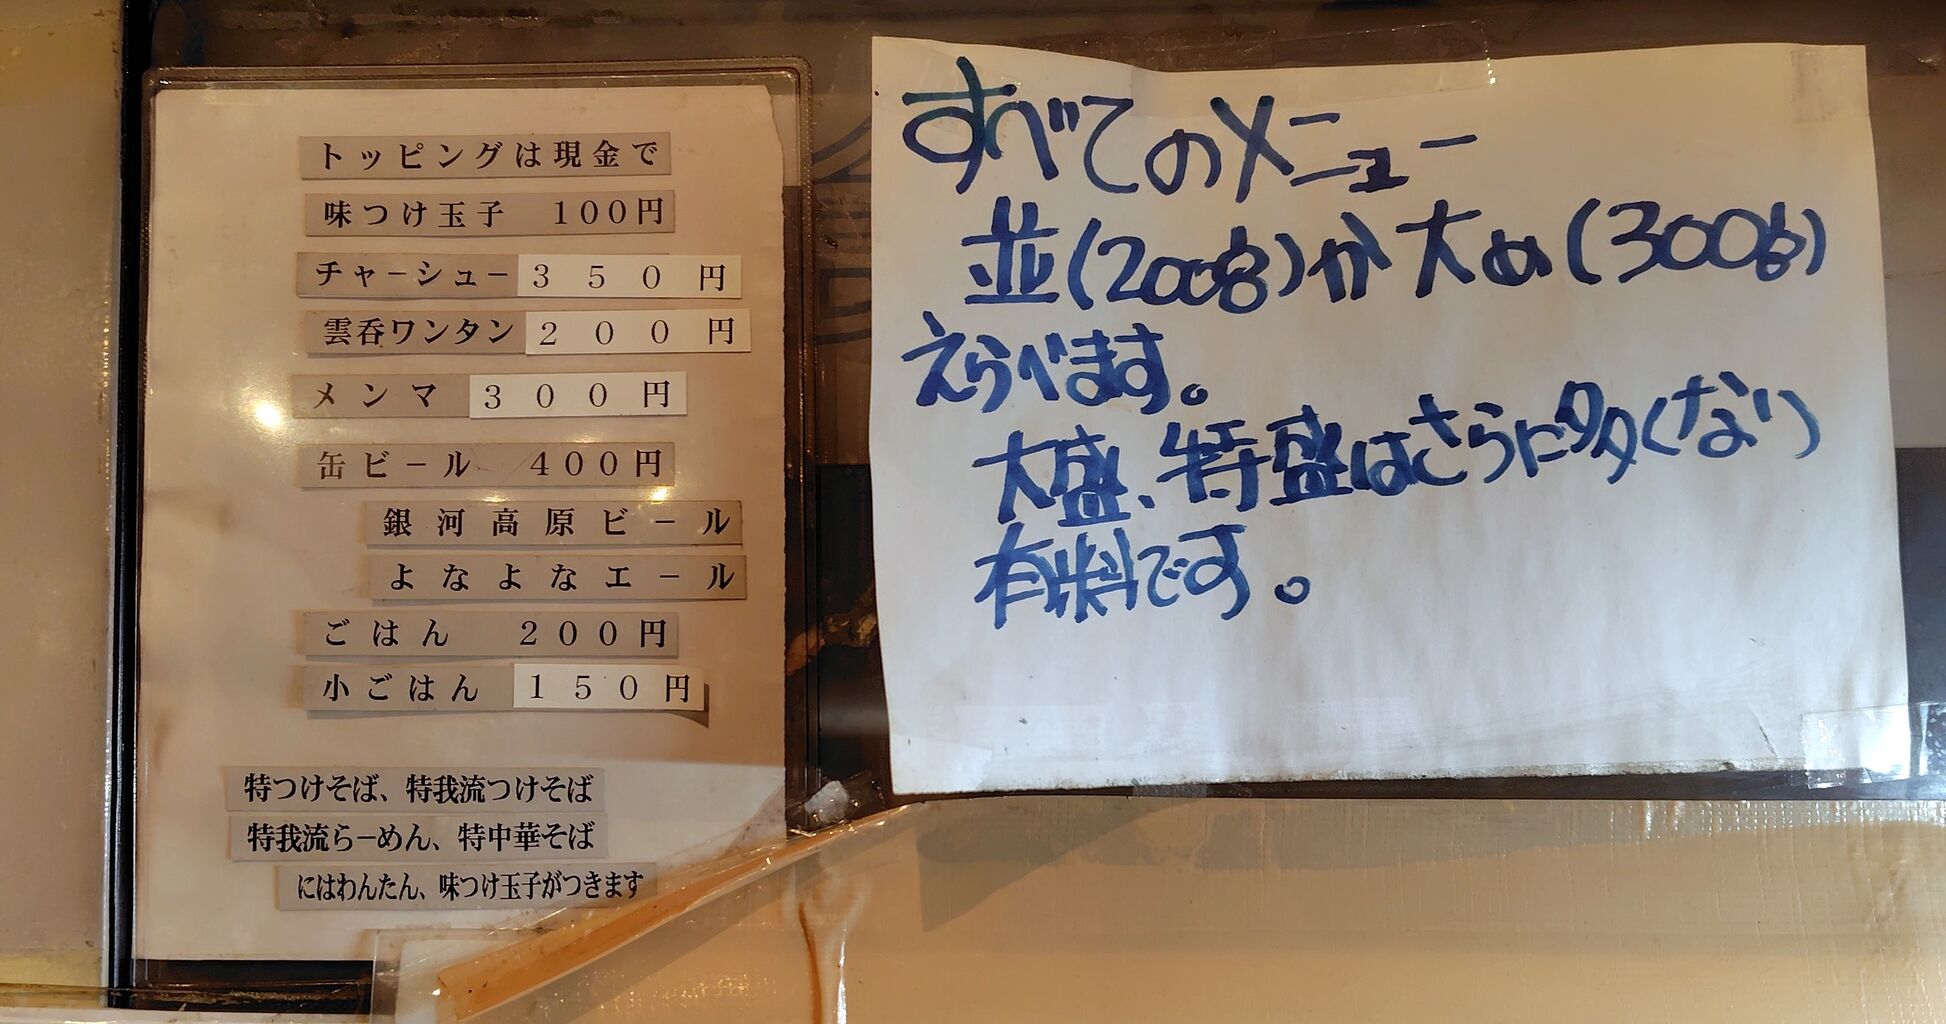 トッピングは現金で
味つけ玉子　100円
チャーシュー３５０円
雲呑ワンタン２００円
メンマ３００円
缶ビール　400円
銀河高原ビール
よなよなエール
ごはん　200円
小ごはん１５０円
特つけそば、特我流つけそば
特我流らーめん、特中華そば
にはわんたん、味つけ玉子がつきます
すべてのメニュー
並(200g)か大め(300g)
えらべます。
大盛、特盛はさらに多くなり
有料です。